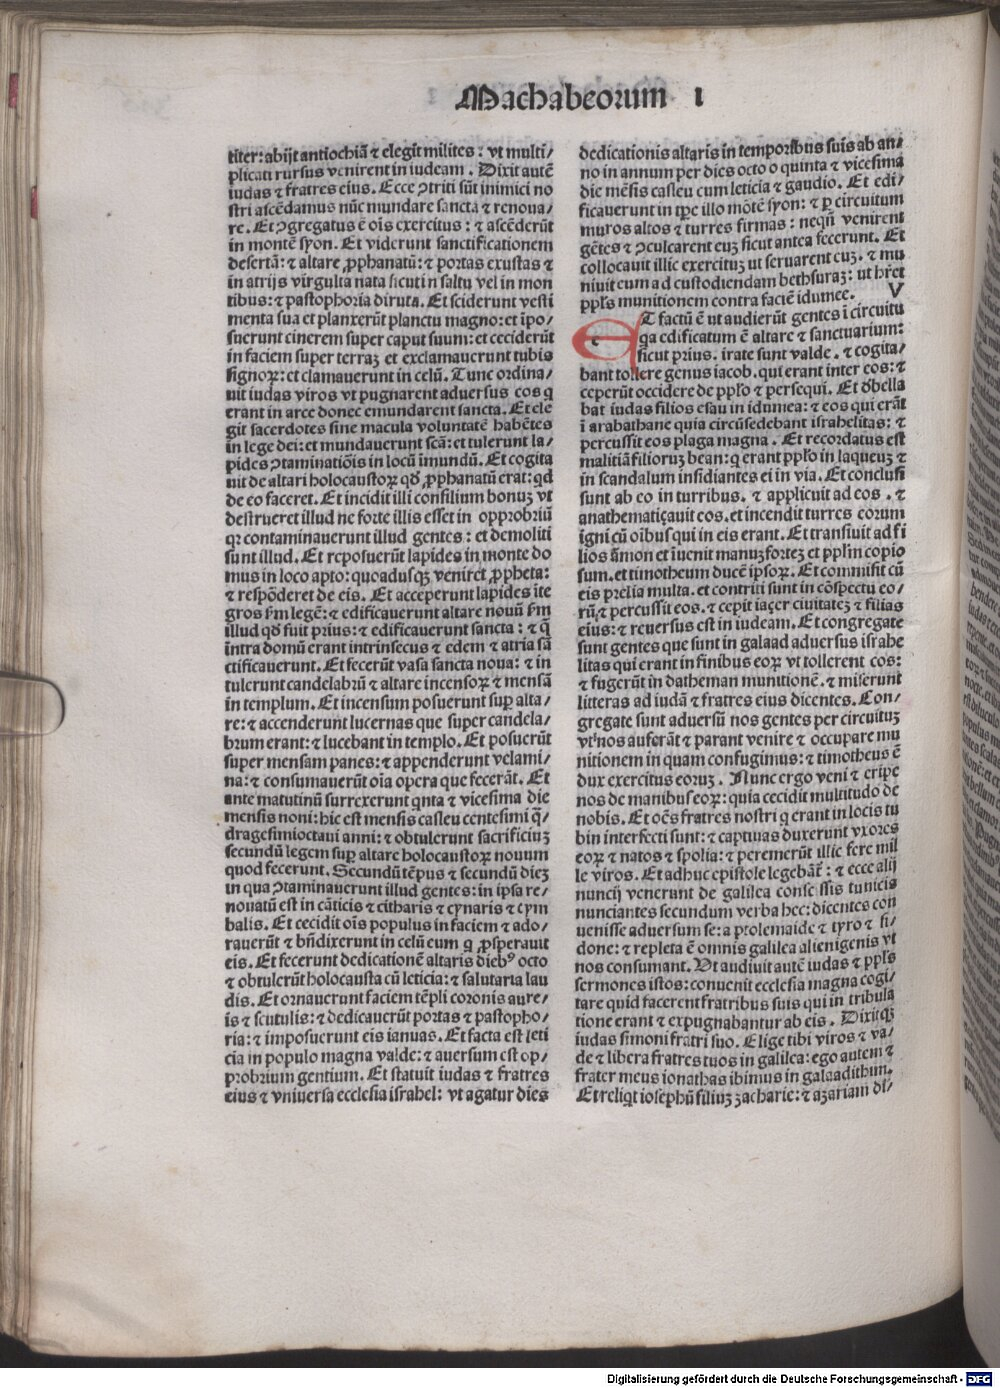 Machabeorum I
titer: abijt antiochiã ⁊ elegit milites: vt multi/
plicati rursus venirent in iudeam. Dixit autẽ
iudas ⁊ fratres eius. Ecce ꝯtriti sũt inimici no
stri ascẽdamus nũc mundare sancta ⁊ renoua/
re. Et ꝯgregatus ẽ oĩs exercitus: ⁊ ascẽderũt
in montẽ syon. Et viderunt sanctificationem
desertã: ⁊ altare ꝓphanatũ: ⁊ portas exustas ⁊
in atrijs virgulta nata sicuti n saltu vel in mon
tibus: ⁊ pastophoria diruta. Et sciderunt vesti
menta sua et planxerũt planctu magno: et ĩpo/
suerunt cinerem super caput suum: et ceciderũt
in faciem super terraȝ et exclamauerunt tubis
signoꝝ: et clamauerunt in celũ. Tunc ordina/
uit iudas viros vt pugnarent aduersus eos q
erant in arce donec emundarent sancta. Et ele
git sacerdotes sine macula voluntatẽ habẽtes
in lege dei: et mundauerunt scã: et tulerunt la/
pides ꝯtaminatiõis in locũ ĩmundũ. Et cogita
uit de altari holocaustoꝝ qd̃ ꝓphanatũ erat: qd
de eo faceret. Et incidit illi consilium bonuȝ vt
destrueret illud ne forte illis esset in opprobriũ
qꝛ contaminauerunt illud gentes: et demoliti
sunt illud. Et reposuerũt lapides in monte do
mus in loco apto: quoadusqȝ veniret ꝓpheta:
⁊ respõderet de eis. Et acceperunt lapides ĩte
gros fm legẽ: ⁊ edificauerunt altare nouũ fm
illud qd̃ fuit prius: ⁊ edificauerunt sancta: ⁊ q̃
ĩntra domũ erant intrinsecus ⁊ edem ⁊ atria sã
ctificauerunt. Et fecerũt vasa sancta noua: ⁊ in
tulerunt candelabrũ ⁊ altare incensoꝝ ⁊ mensã
in templum. Et incensum posuerunt suꝑ alta/
re: ⁊ accenderunt lucernas que super candela/
brum erant: ⁊ lucebant in templo. Et posuerũt
super mensam panes: ⁊ appenderunt velami/
na: ⁊ consumauerũt oĩa opera que fecerãt. Et
ante matutinũ surrexerunt qnta ⁊ vicesima die
mensis noni: hic est mensis casleu centesimi q̃/
dragesimioctaui anni: ⁊ obtulerunt sacrificiuȝ
secundũ legem suꝑ altare holocaustoꝝ nouum
quod fecerunt. Secundũ tẽpus ⁊ secundũ dieȝ
in qua ꝯtaminauerunt illud gentes: in ipsa re/
nouatũ est in cãticis ⁊ citharis ⁊ cynaris ⁊ cym
balis. Et cecidit oĩs populus in faciem ⁊ ado/
rauerũt ⁊ bñdixerunt in celũ eum q ꝓsperauit
eis. Et fecerunt dedicationẽ altaris diebꝰ octo
⁊ obtulerũt holocausta cũ leticia: ⁊ salutaria lau
dis. Et ornauerunt faciem tẽpli coronis aure/
is ⁊ scutulis: ⁊ dedicauerũt portas ⁊ pastopho/
ria: ⁊ imposuerunt eis ianuas. Et facta est leti
cia in populo magna valde: ⁊ auersum est op/
probrium gentium. Et statuit iudas ⁊ fratres
eius ⁊ vniuersa ecclesia israhel: vt agatur dies
dedicationis altaris in temporibus suis ab an/
no in annum per dies octo o quinta ⁊ vicesima
die mẽsis casleu cum leticia ⁊ gaudio. Et edi/
ficauerunt in tꝑe illo mõtẽ syon: ⁊ ꝑ circuitum
muros altos ⁊ turres firmas: nequñ venirent
gẽtes ⁊ ꝯculcarent euȝ sicut antea fecerunt. Et
collocauit illic exercituȝ ut seruarent euȝ. ⁊ mu
niuit eum ad custodiendam bethsuraȝ: ut hr̃et
ppl̃s munitionem contra faciẽ idumee. V
ET factũ ẽ ut audierũt gentes ĩ circuitu
qa edificatum ẽ altare ⁊ sanctuarium:
sicut prius. irate sunt valde. ⁊ cogita/
bant tollere genus iacob. qui erant inter eos: ⁊
ceperũt occidere de ppl̃o ⁊ persequi. Et d̃bella
bat iudas filios esau in idumea: ⁊ eos qui erãt
ĩ arabathane quia circũsedebant israhelitas: ⁊
percussit eos plaga magna. Et recordatus est
malitiã filioruȝ bean: q erant ppl̃o in laqueuȝ ⁊
in scandalum insidiantes ei in via. Et conclusi
sunt ab eo in turribus. ⁊ applicuit ad eos. ⁊
anathematiçauit eos. et incendit turres eorum
ĩgni cũ oĩbus qui in eis erant. Et transiuit ad fi
lios ãmon et ĩuenit manuȝ forteȝ et ppl̃m copio
sum. et timotheum ducẽ ipsoꝝ. Et commisit cũ
eis prelia multa. et contriti sunt in cõspectu eo/
rũ, ⁊ percussit eos. ⁊ cepit iaçer ciuitateȝ ⁊ filias
eius: ⁊ reuersus est in iudeam. Et congregate
sunt gentes que sunt in galaad aduersus israhe
litas qui erant in finibus eoꝝ vt tollerent eos:
⁊ fugerũt in datheman munitionẽ. ⁊ miserunt
litteras ad iudã ⁊ fratres eius dicentes. Con/
gregate sunt aduersũ nos gentes per circuituȝ
vt nos auferãt ⁊ parant venire ⁊ occupare mu
nitionem in quam confugimus: ⁊ timotheus ẽ
dux exercitus eoruȝ. Nunc ergo veni ⁊ eripe
nos de manibus eoꝝ: quia cecidit multitudo de
nobis. Et oẽs fratres nostri q erant in locis tu
bin interfecti sunt: ⁊ captiuas duxerunt vxores
eoꝝ ⁊ natos ⁊ spolia: ⁊ peremerũt illic fere mil
le viros. Et adhuc epistole legebãt: ⁊ ecce alij
nuncij venerunt de galilea conscissis tunicis
nunciantes secundum verba hec: dicentes con
uenisse aduersum se: a ptolemaide ⁊ tyro ⁊ si/
done: ⁊ repleta ẽ omnis galilea alienigenis vt
nos consumant. Vt audiuit autẽ iudas ⁊ ppl̃s
sermones istos: conuenit ecclesia magna cogi/
tare quid facerent fratribus suis qui in tribula
tione erant ⁊ expugnabantur ab eis. Dixitqȝ
iudas simoni fratri suo. Elige tibi viros ⁊ va/
de ⁊ libera fratres tuos in galilea: ego autem ⁊
frater meus ionathas ibimus in galaadithim.
Et reliqt iosephũ filiuȝ ȝacharie: ⁊ aȝariam di/
Digitalisierung gefördert durch die Deutsche Forschungsgemeinschaft - DFG